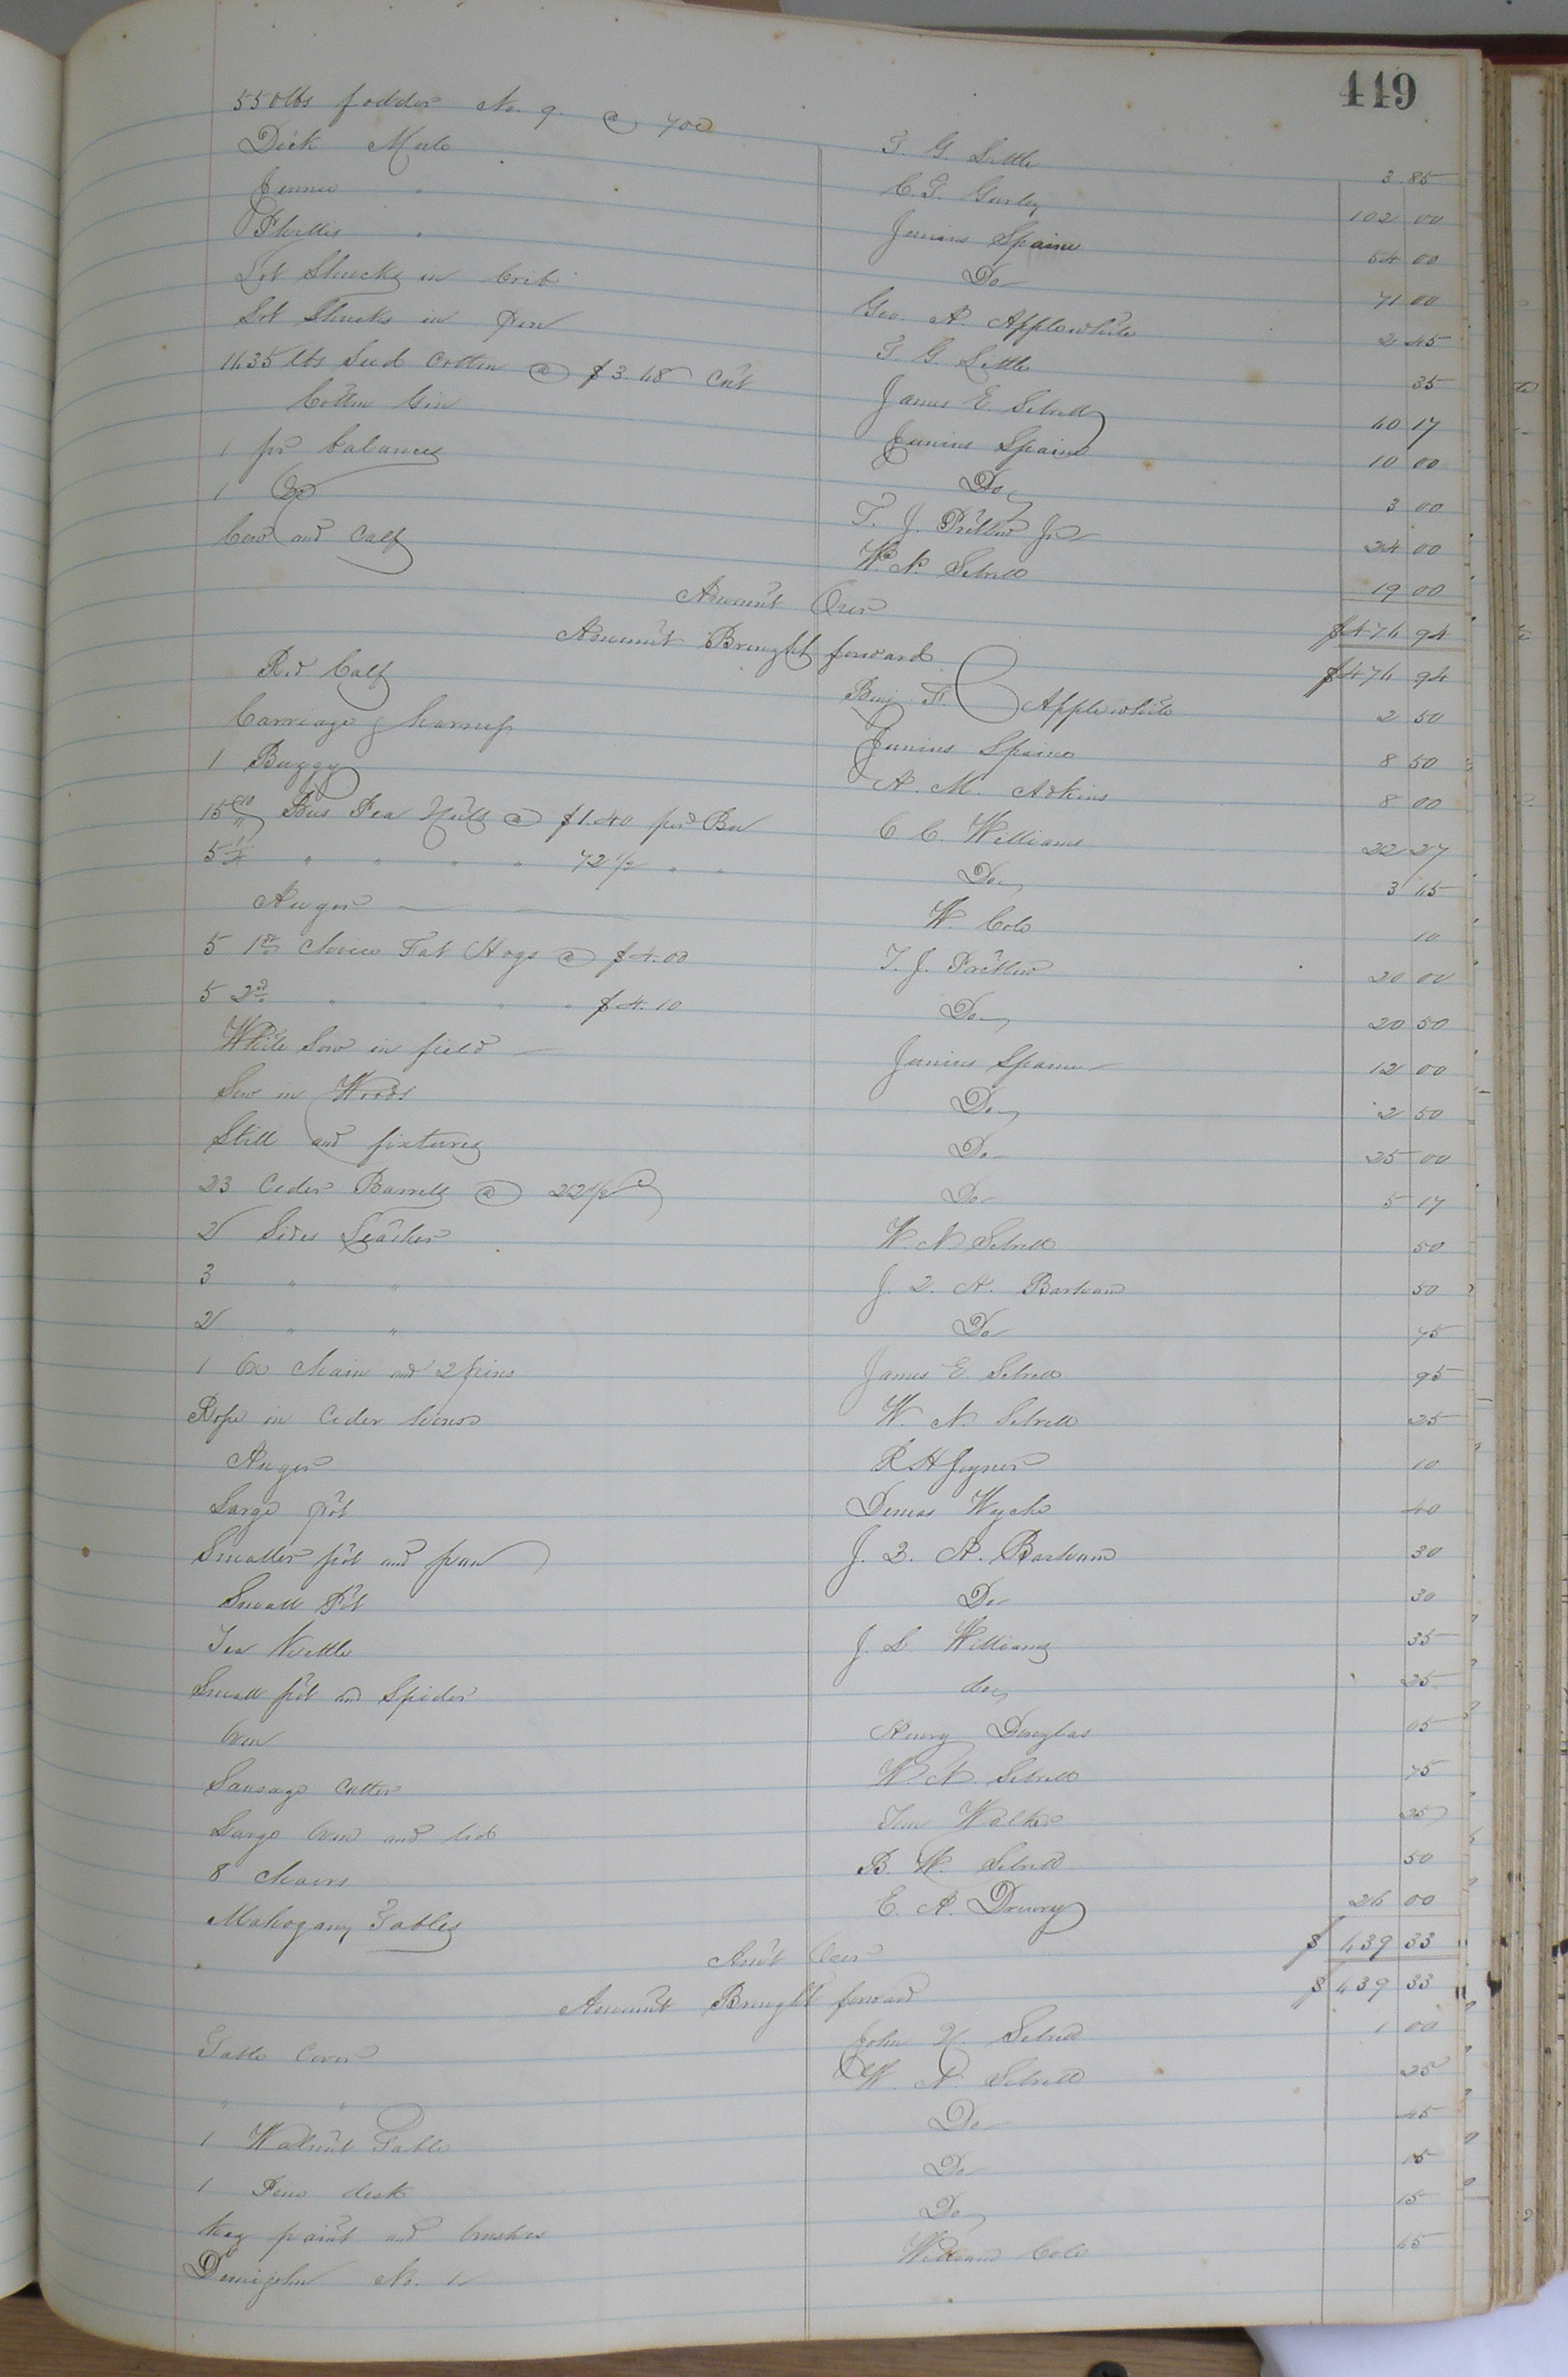 449
550 lbs fodder No. 9. @ 70c T. G. Little 3 85
Dick Mule C. T. Gurley 102 00
Jennie " Junius Spain 54 00
Phillis " Do 71 00
Lot Shucks in Crib Geo. A. Applewhite 2 45
Lot Shucks in Pen T. G. Little 35
1135 lbs Seed Cotton @ $3.48 Cwt James E. Sebrell 40 17
Cotton Gin Junius Spain 10 00
1 pr balances Do 3 00
1 Ox T. J. Pretlow Jr 24 00
Cow and Calf W. N. Sebrell 19 00
Amount Over $476 94
Amount Brought forward $476 94
Red Calf Benj. F. Applewhite 2 50
Carriage & harness Junius Spain 8 50
1 Buggy A. M. Adkins 8 00
15 Bus Pea Nuts @ $1.40 per Bu C. C. Williams 22 27
5 " " " " 72 1/2 " " Do 3 65
Auger W. Cole 10
5 1st Choice Fat Hogs @ $4.00 T. J. Pretlow 20 00
5 2nd " " " " $4.10 Do 20 50
White Sow in field Junius Spain 12 00
Sow in Woods Do 2 50
Still and fixtures Do 25 00
23 Cider Barrells @ 22 1/2c Do 5 17
2 Sides Leather W. N. Sebrell 50
3 " " J. Q. A. Barham 50
2 " " Do 75
1 Ox Chain and 2 pins James E. Sebrell 95
Rope in Cider house W. N. Sebrell 25
Auger R H Joyner 10
Large pot Demas Wyche 40
Smaller pot and pan J. Q. A. Barham 30
Small Pot Do 30
Tea Kettle J. L. Williams 35
Small pot and Spider do 25
Oven Henry Douglas 05
Sausage Cutter W. N. Sebrell 75
Large Oven and led Walker 25
8 Chairs B. W. Sebrell 50
Mahogany Tables E. A. Drewry 26 00
Amt Over $639 33
Amount Brought forward $639 33
Table Cover John N. Sebrell 1 00
" " W. N. Sebrell 25
1 Walnut Table Do 45
1 Pine desk Do 15
Keg paint and brushes Do 15
Demijohn No. 1 William Cole 65